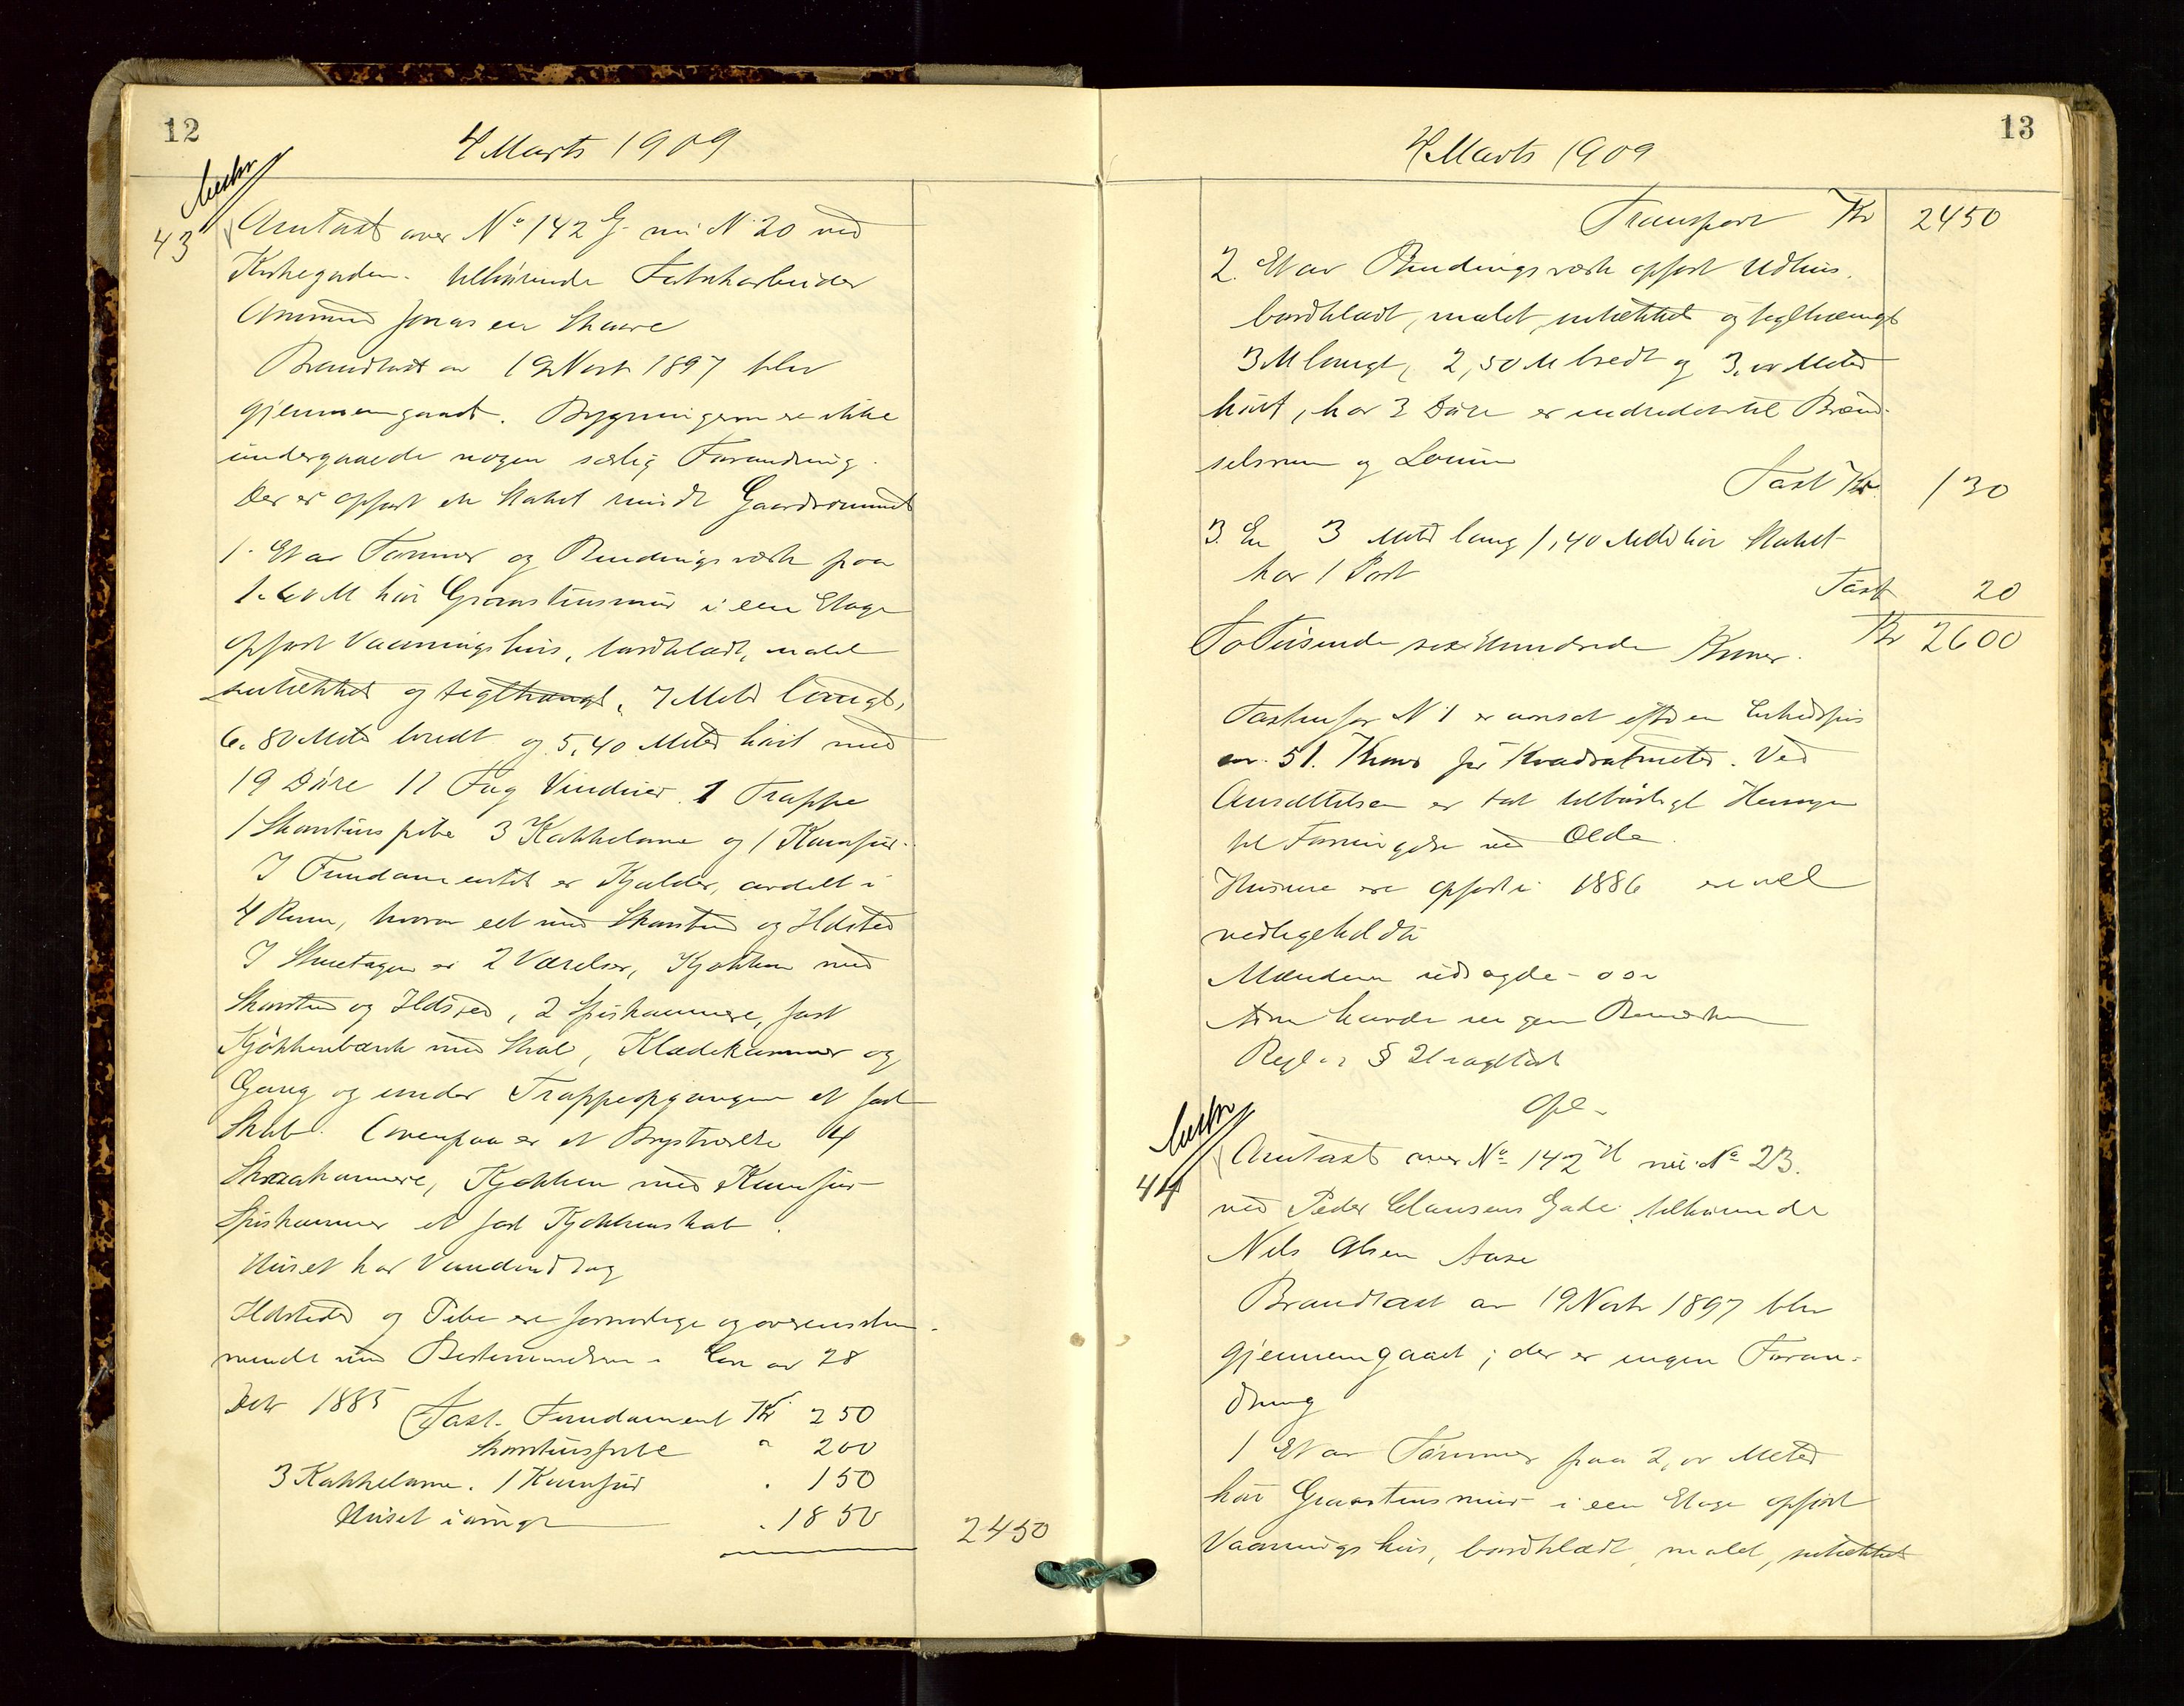 12
4 Marts 1909
43
Omtaxt over No 142 G. nu N 20 ved
Kirkegaden. tilhørende Fabrikarbeider
Ommund Jonasen Skaare
Brandtaxt av 19 Novbr 1897 blev
gjennemgaaet. Bygningerne er ikke
undergaaede nogen særlig Forandring.
Der er opført en Stakit rundt Gaardsrummet
1. Et av Tømmer og Bindingsværk paa
1.60 M høi Graastensmur i een Etage
opført Vaaningshus, bordklædt, malet
nehættet og teglhængt, 7 Meter langt,
6.80 Meter bredt og 5,40 Meter høit med
19 Døre 11 Fag Vinduer 1 Trappe
1 Skorstenspibe 3 Kakkelovne og 1 Komfur.
I Fundamentet er Kjælder, avdelt i
4 Rum, hvorav eet med Skorsten og Ildsted
I Stuetagen er 2 Værelser, Kjøkken med
Skorsten og Ildsted, 2 Spiskammere, fast
Kjøkkenbænk med Skab, Klædekammer og
Gang og under Trappeopgangen et fast
Skab. Ovenpaa er et Brystværelse 4
Skraakammere, Kjøkken med Komfur
Spiskammer et fast Kjøkkenskab.
Huset har Vandindlæg
Ildsteder og Pibe ere forsvarlige og overensstem-
mende med Bestemmelsen i Lov av 28
Detr 1885
Taxt. Fundament Kr 250
Skorstenspibe " 200
3 Kakkelovne. 1 Komfur . 150
Huset iøvrigt . 1850
2450
13
4 Marts 1909
Transport Kr 2450
2. Et av Bindingsværk opført Udhus.
bordklædt, malet, nehættet og teglhængt
3 M langt, 2,50 M bredt og 3.00 Meter
høit, har 3 Døre er indredet til Brænd-
selsrum og
Taxt Kr. 130
3. En 3 Meter lang 1,40 Meter høi Stakit
har 1 Port
Taxt 20
To Tusinde sex Hundrede Kroner. Kr 2600
Taxten for N 1 er ansat efter en Enhedspris
av 51. Kroner pr Kvadratmeter. Ved
Ansættelsen er tat tilbørligt Hensyn
til Forringelse ved Ælde.
Husene ere opført i 1886 ere vel
vedligeholdte
Mændene udsagde
havde ingen
Regl.s § 21 iagttat
Opl.
44
Omtaxt over No 142 H nu No 23.
ved Peder Clausens Gade tilhørende
Nils Olsen Aase
Brandtaxt av 19 Novbr 1897 blev
gjennemgaaet; der er ingen Foran-
dring
1 Et av Tømmer paa 2,00 Meter
høi Graastensmur i een Etage opført
Vaaningshus, bordklædt, malet, nehættet